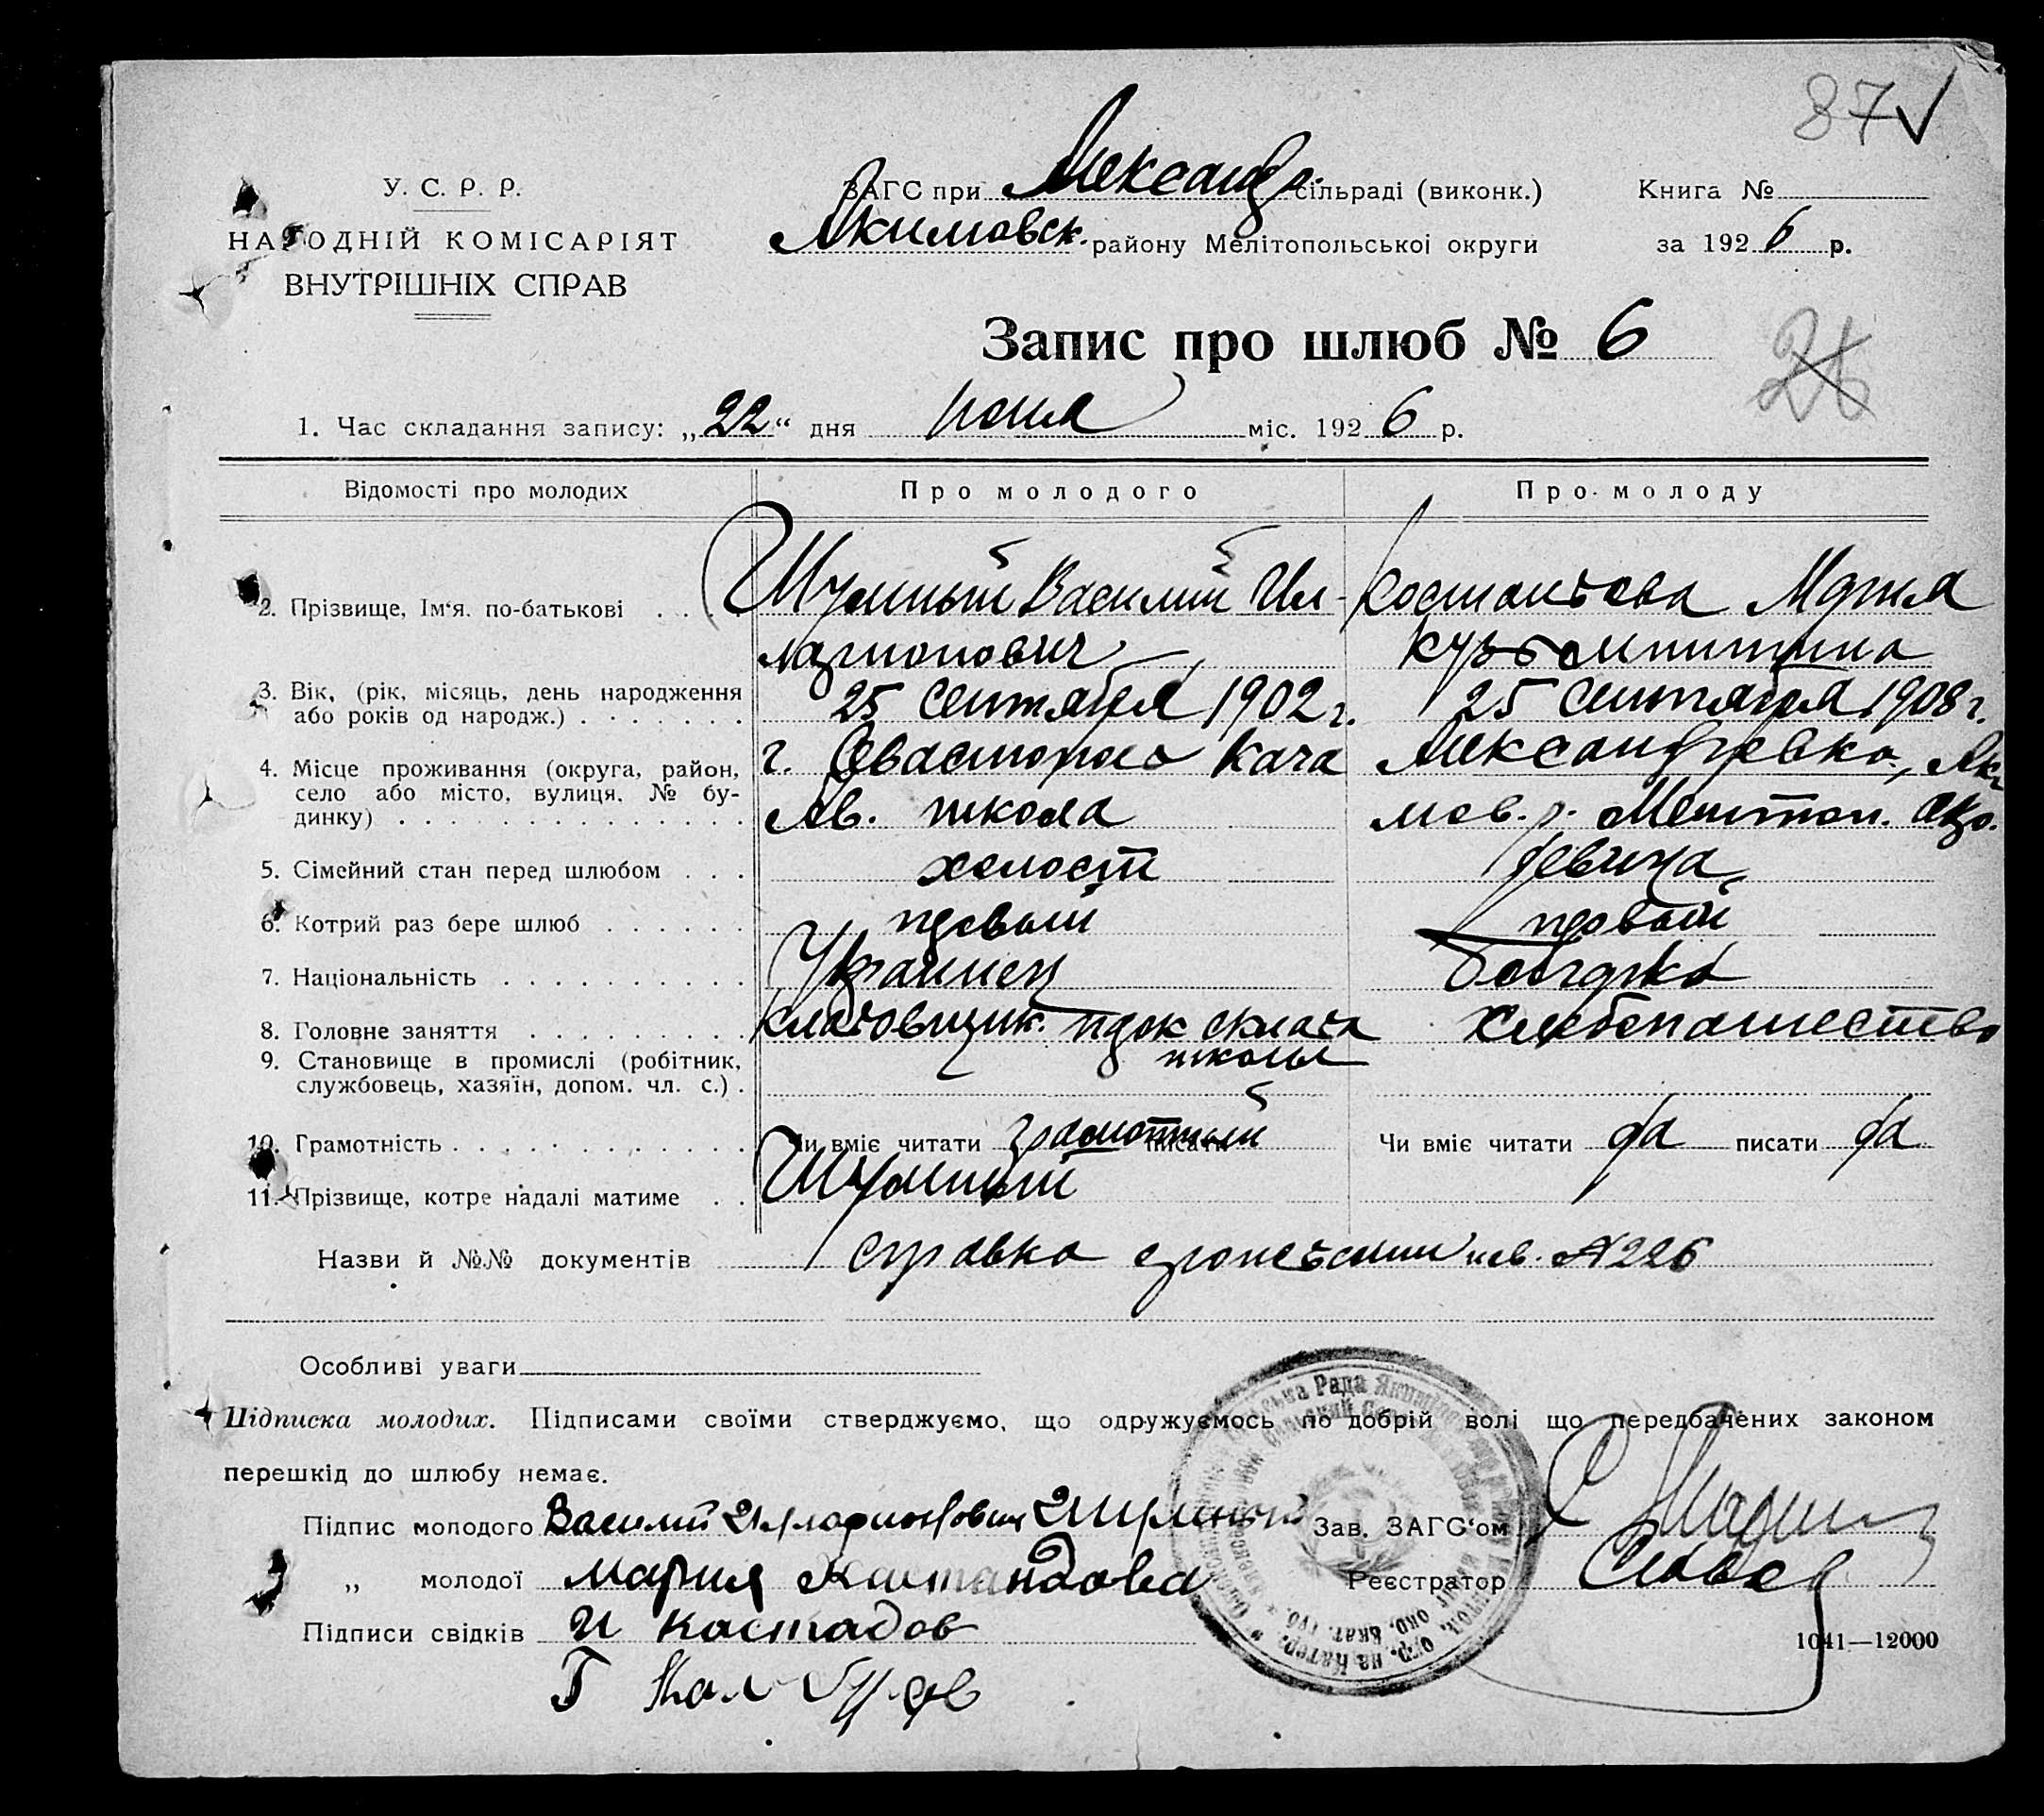 87 ✓
У. С. Р. Р.
НАРОДНІЙ КОМІСАРІЯТ
ВНУТРІШНІХ СПРАВ
ЗАГС при Александр. сільраді (виконк.) Книга №
Акимовск. району Мелітопольської округи за 1926 р.
Запис про шлюб № 6
26
1. Час складання запису: „22“ дня июня міс. 1926 р.
Відомості про молодих Про молодого Про молоду
2. Прізвище, Ім'я. по-батькові Шумный Василий Ил- Костандова Мария
ларионович
3. Вік, (рік, місяць, день народження 25 сентября 1902 г. 25 сентября 1908 г.
або років од народж.)
4. Місце проживання (округа, район, г. Севастополь Кача Александровка, Аки
село або місто, вулиця, № бу- Ав. школа мов. р. Мелитоп. окр.
динку)
5. Сімейний стан перед шлюбом холост девица
6. Котрий раз бере шлюб первый первый
7. Національність Украинец болгарка
8. Головне заняття кладовщик. прок склада хлебопашество
школы
9. Становище в промислі (робітник,
службовець, хазяїн, допом. чл. с.)
10. Грамотність Чи вміє читати грамотный писати Чи вміє читати да писати да
11. Прізвище, котре надалі матиме Шумный
Назви й №№ документів справка № 226
Особливі уваги
Підписка молодих. Підписами своїми стверджуємо, що одружуємось по добрій волі що передбачених законом
перешкід до шлюбу немає.
Підпис молодого Василий Илларионович Шумный Зав. ЗАГС'ом
„ молодої Мария Костандова Реєстратор
Підписи свідків И Костадов
1041—12000
Г